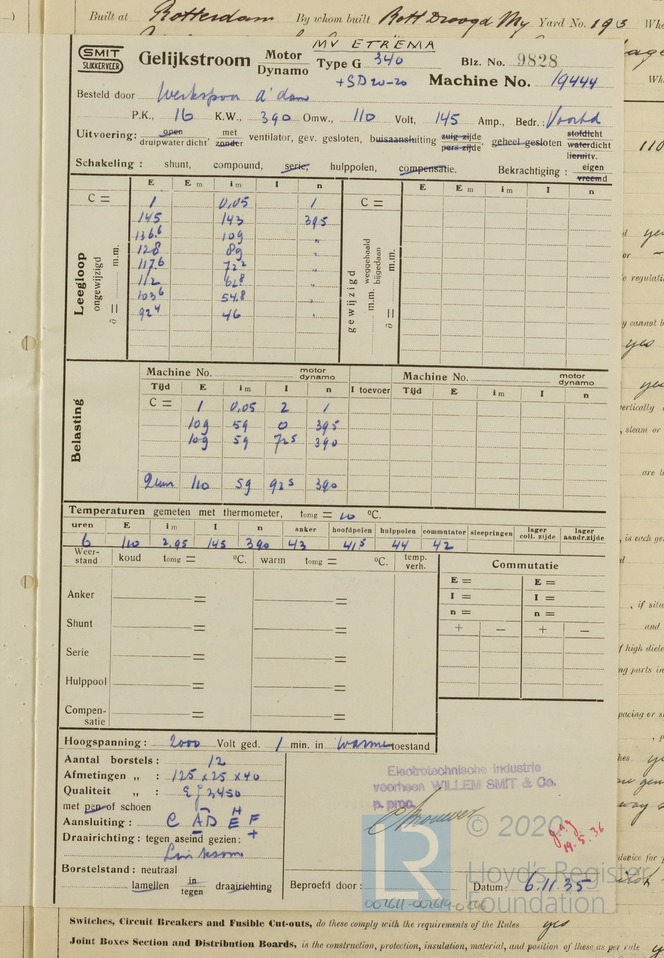 Built at Rotterdam By whom built Rott Droogd My Yard No. 193
MV ETREMA
SMIT
SLIKKERVEER
Gelijkstroom Motor Dynamo Type G 340
Blz. No. 9828
+SD 20-20
Machine No. 19444
Besteld door Werkspoor A'dam
P.K., 16 K.W., 390 Omw., 110 Volt, 145 Amp., Bedr.:
Uitvoering: open druipwaterdicht' met zonder ventilator, gev. gesloten, buisaansluiting zuig-zijde pers-zijde, geheel gesloten stofdicht waterdicht
Schakeling: shunt, compound, serie, hulppolen, compensatie. Bekrachtiging: eigen vreemd
E E m i m I n E E m i m I n
C = 1 0,05 1 C =
145 143 395
136.6 109 "
128 89 "
117.6 72.2 "
112 62.8 "
103.6 54.8 "
92.4 46 "
Leegloop
ongewijzigd
δ = m.m.
gewijzigd
m.m. weggehaald bijgedaan
δ = m.m.
Belasting
Machine No. motor dynamo Machine No. motor dynamo
Tijd E i m I n I toevoer Tijd E i m I n
C = 1 0,05 2 1
109 59 0 395
109 59 72.5 390
2 uur 110 59 92.5 390
Temperaturen gemeten met thermometer, tomg = 20 °C.
uren E i m I n anker hoofdpolen hulppolen commutator sleepringen lager coll. zijde lager aandr. zijde
6 110 2.95 145 390 43 41.5 44 42
Weerstand koud tomg = °C. warm tomg = °C. temp. verh.
Commutatie
E = E =
I = I =
n = n =
+ − + −
Anker = =
Shunt = =
Serie = =
Hulppool = =
Compensatie = =
Hoogspanning: 2000 Volt ged. 1 min. in warme toestand
Aantal borstels: 12
Afmetingen „ : 125 x 25 x 40
Qualiteit „ :
met pen of schoen
Aansluiting: C A D E H F
Draairichting: tegen aseind gezien: +
Linksom
Borstelstand: neutraal
lamellen in tegen draairichting
Electrotechnische Industrie
voorheen WILLEM SMIT & Co.
p. proc.
19.5.36
Beproefd door:
Datum: 6.11.35
© 2020
LR
Lloyd's Register
Foundation
Switches, Circuit Breakers and Fusible Cut-outs, do these comply with the requirements of the Rules yes
Joint Boxes Section and Distribution Boards, is the construction, protection, insulation, material, and position of these as per rule